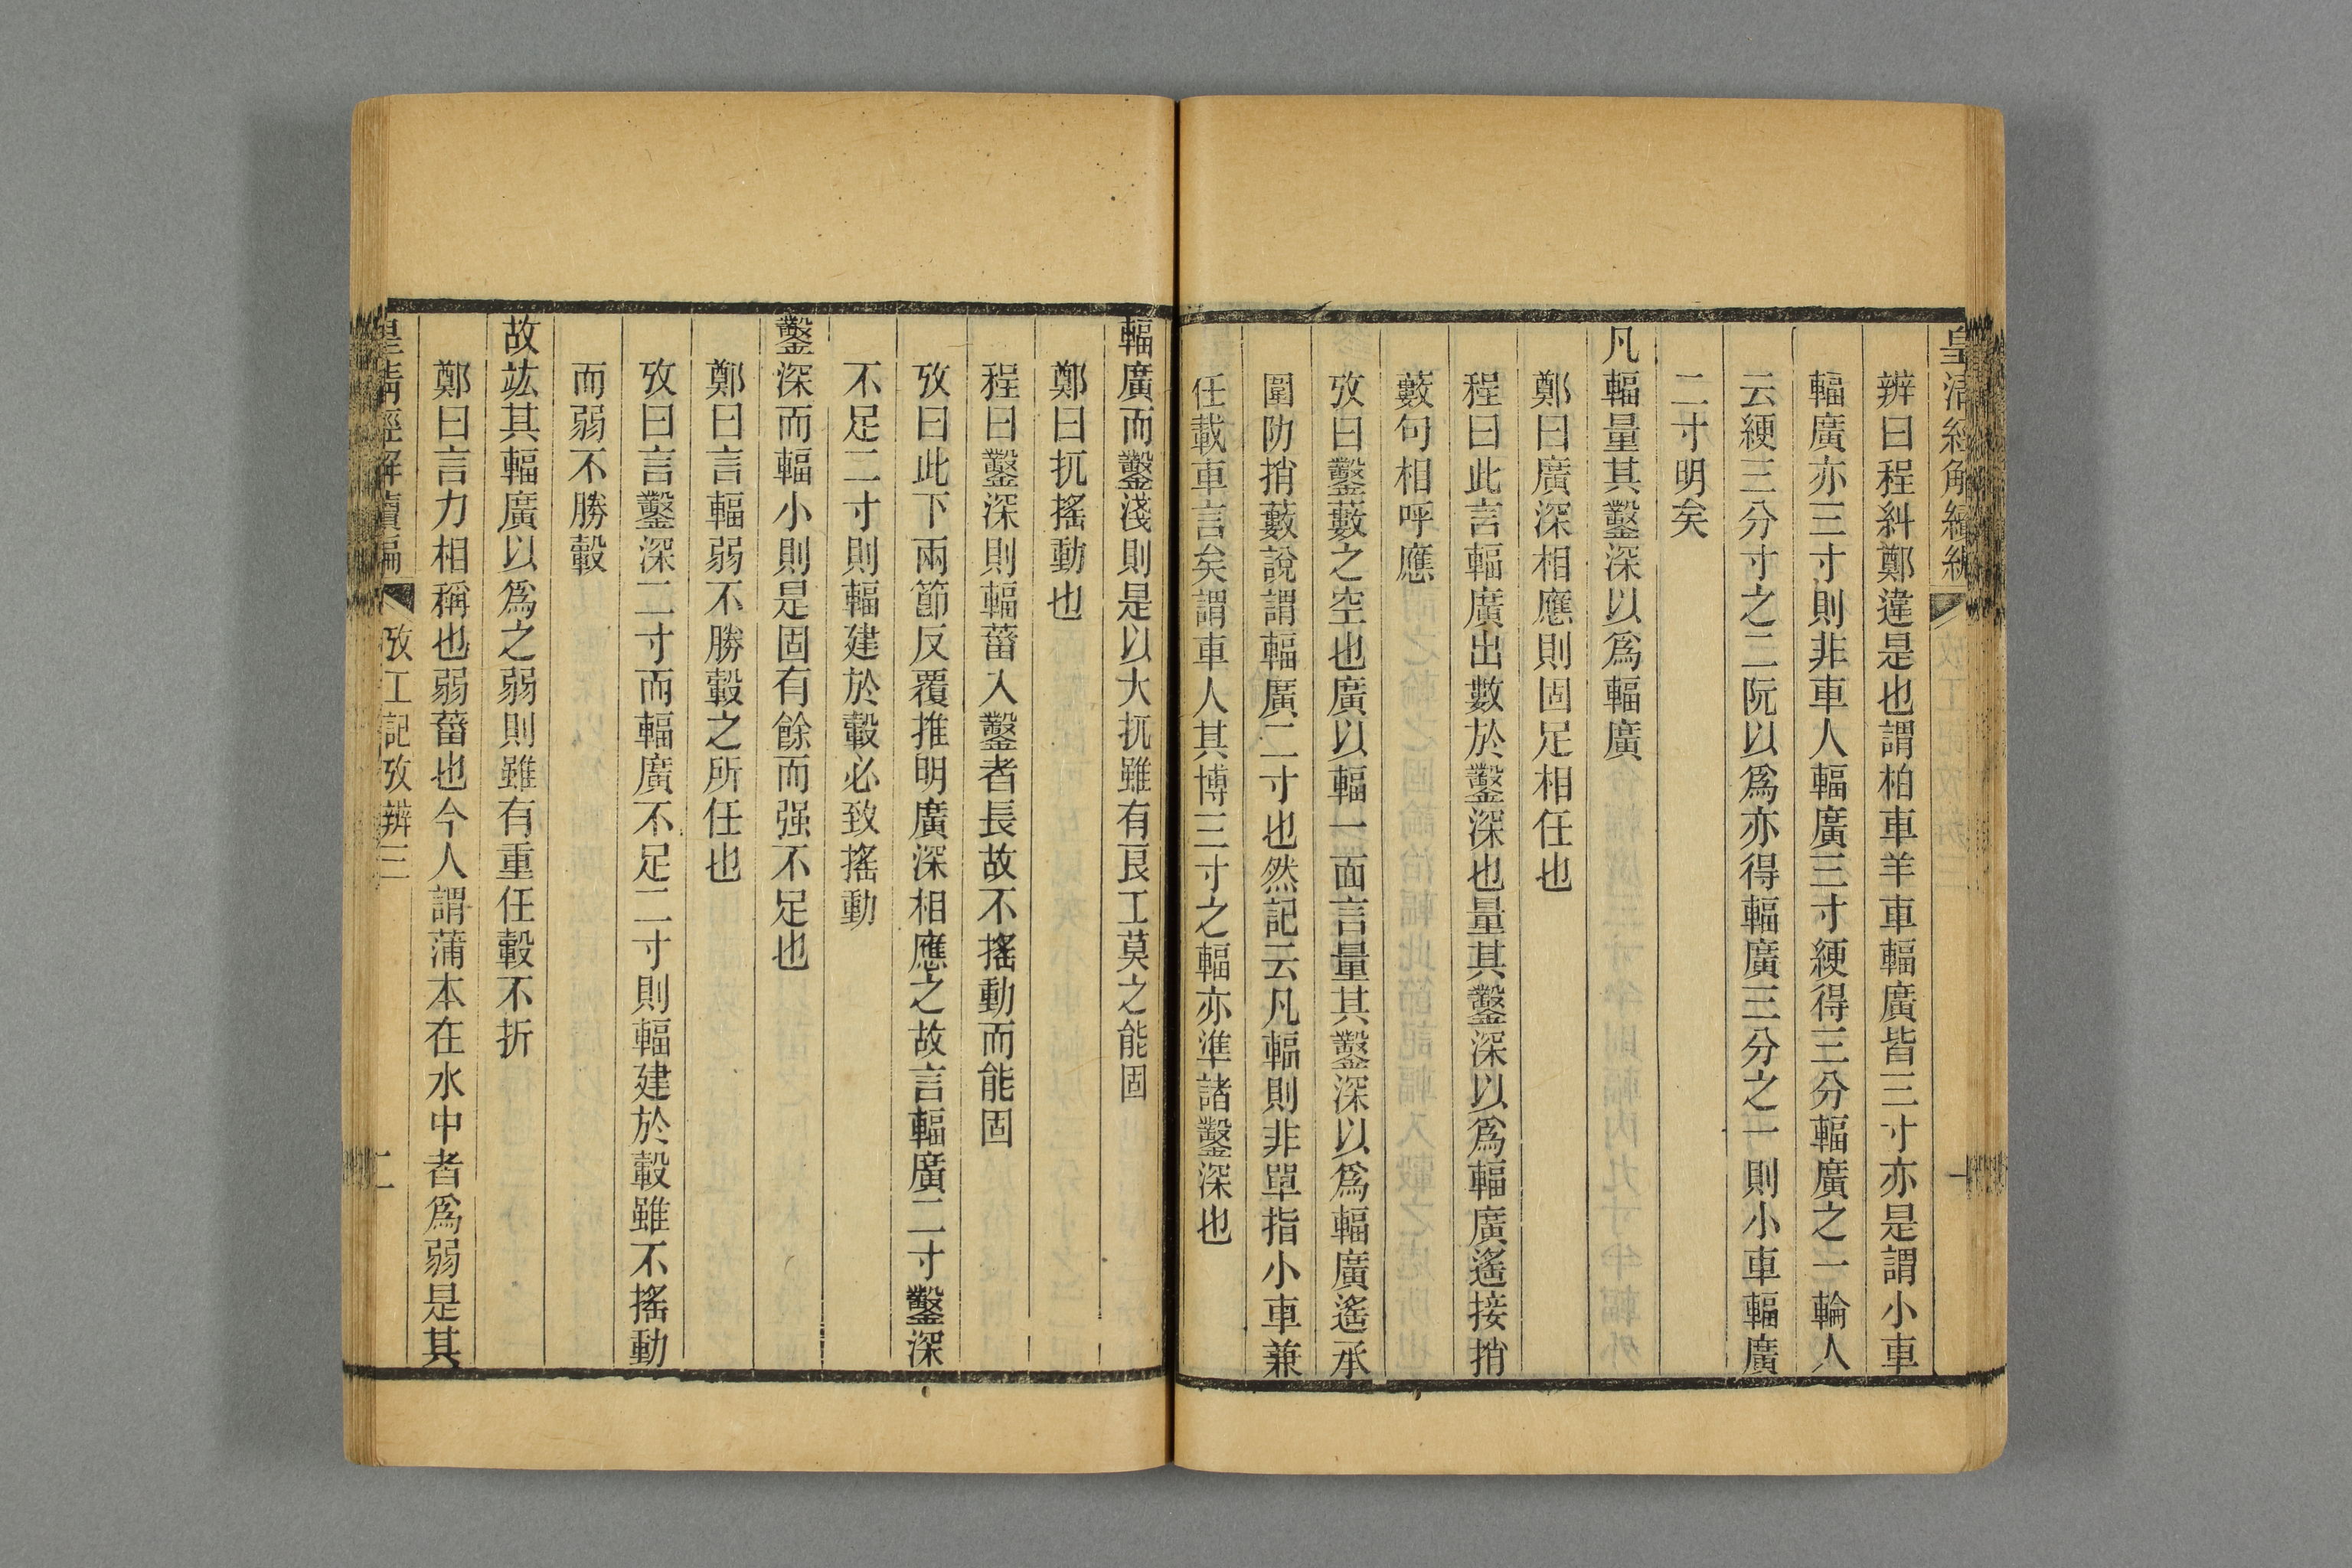 皇清經解續編 攷工記攷辨三 一
辨曰程糾鄭違是也謂柏車羊車輻廣皆三寸亦是謂小車
輻廣亦三寸則非車人輻廣三寸綆得三分輻廣之一輪人
云綆三分寸之二阮以爲亦得輻廣三分之一則小車輻廣
二寸明矣
凡輻量其鑿深以爲輻廣
鄭曰廣深相應則固足相任也
程曰此言輻廣出數於鑿深也量其鑿深以爲輻廣遙接捎
藪句相呼應
攷曰鑿藪之空也廣以輻一面言量其鑿深以爲輻廣遙承
圍阞捎藪說謂輻廣二寸也然記云凡輻則非單指小車兼
任載車言矣謂車人其博三寸之輻亦準諸鑿深也
輻廣而鑿淺則是以大扤雖有良工莫之能固
鄭曰扤搖動也
程曰鑿深則輻菑入鑿者長故不搖動而能固
攷曰此下兩節反覆推明廣深相應之故言輻廣二寸鑿深
不足二寸則輻建於轂必致搖動
鑿深而輻小則是固有餘而强不足也
鄭曰言輻弱不勝轂之所任也
攷曰言鑿深二寸而輻廣不足二寸則輻建於轂雖不搖動
而弱不勝轂
故竑其輻廣以爲之弱則雖有重任轂不折
鄭曰言力相稱也弱菑也今人謂蒲本在水中者爲弱是其
皇清經解續編 攷工記攷辨三 二